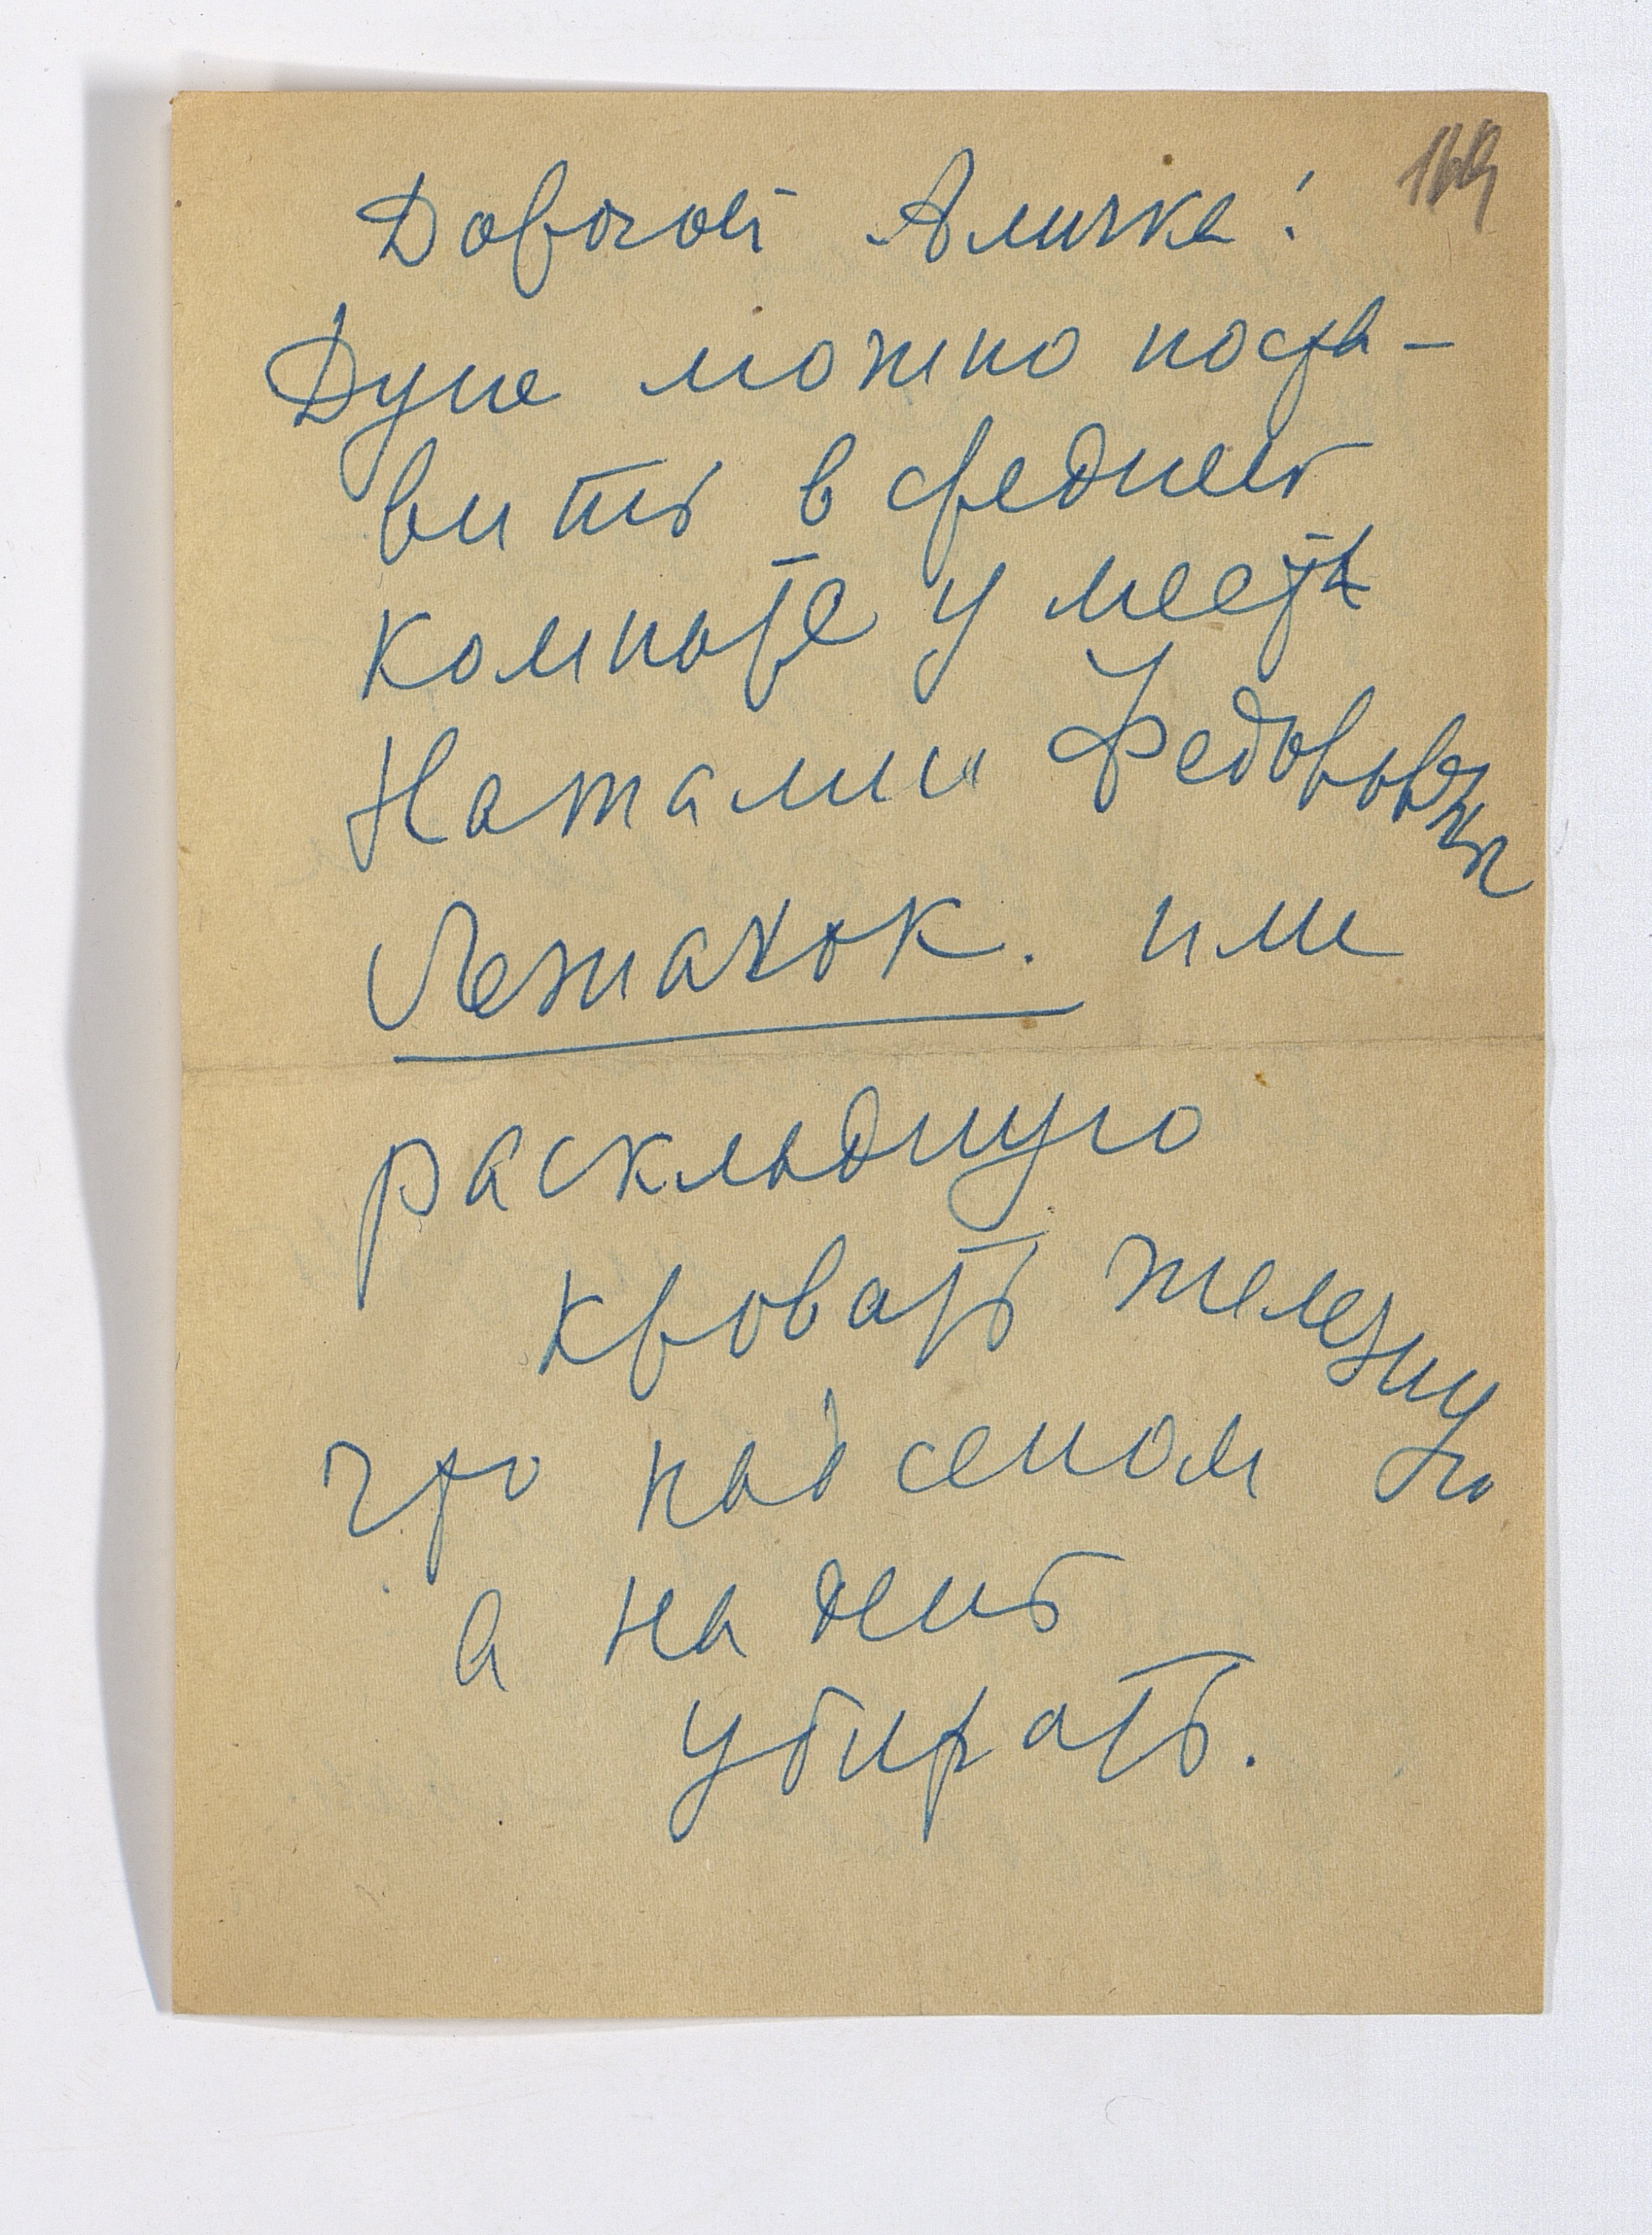 169
Дорогой Аличка!
Дуне можно поста-
вить в средней
комнате у места
Наталии Федоровны
Лежачок. или
раскладную
кровать железную
что над сеном
а на день
убирать.